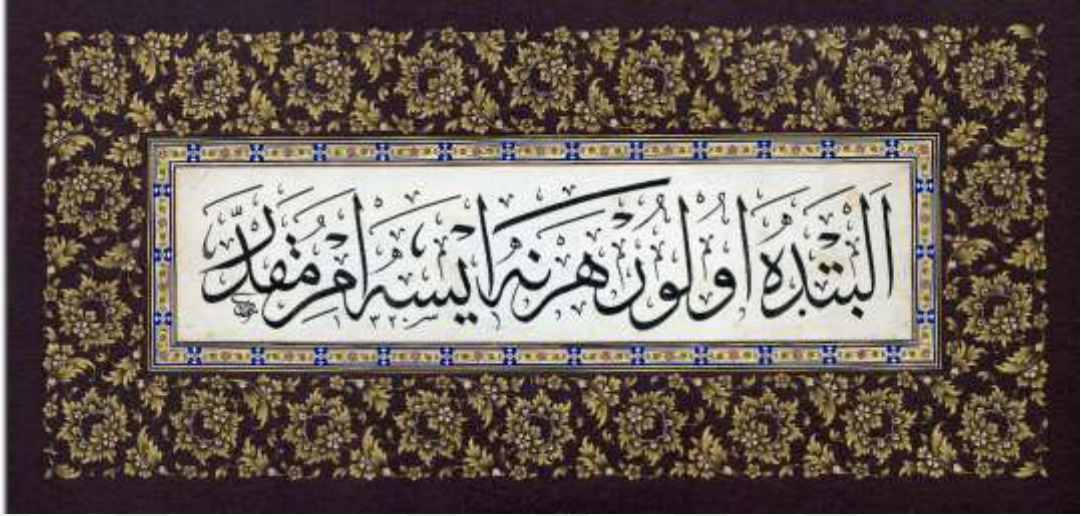 البتده اولور هر نه ایسه امر مقدر
۱۳۲۰